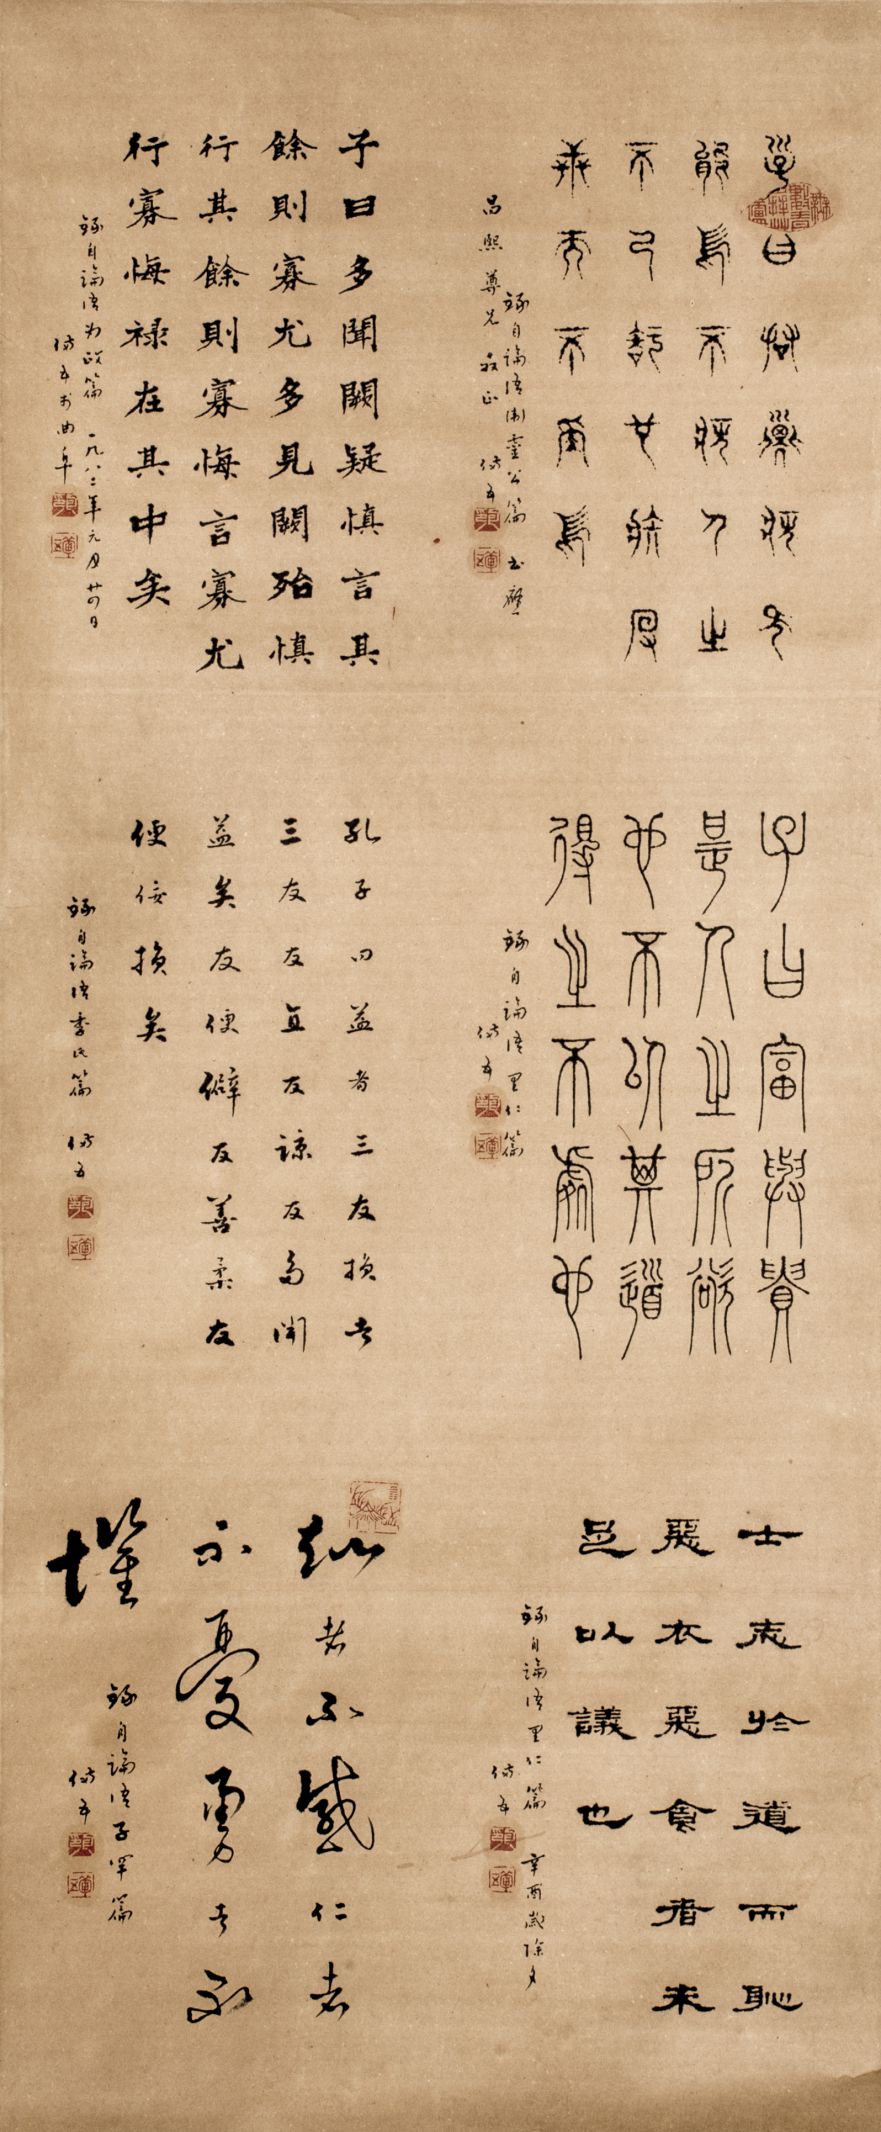 子曰君子病无
能焉不病人之
不己知也
錄自論語衛靈公篇 書應
昌熙尊兄
子曰多聞闕疑慎言其
餘則寡尤多見闕殆慎
行其餘則寡悔言寡尤
行寡悔祿在其中矣
錄自論語為政篇 一九八二年元月廿四日
於曲阜
子曰富與貴
是人之所欲
也不以其道
得之不處也
錄自論語里仁篇
孔子曰益者三友損者
三友友直友諒友多聞
益矣友便僻友善柔友
便佞損矣
錄自論語季氏篇
士志於道而恥
惡衣惡食者未
足以議也
錄自論語里仁篇 辛酉歲除夕
知者不惑仁者
不憂勇者不
懼
錄自論語子罕篇